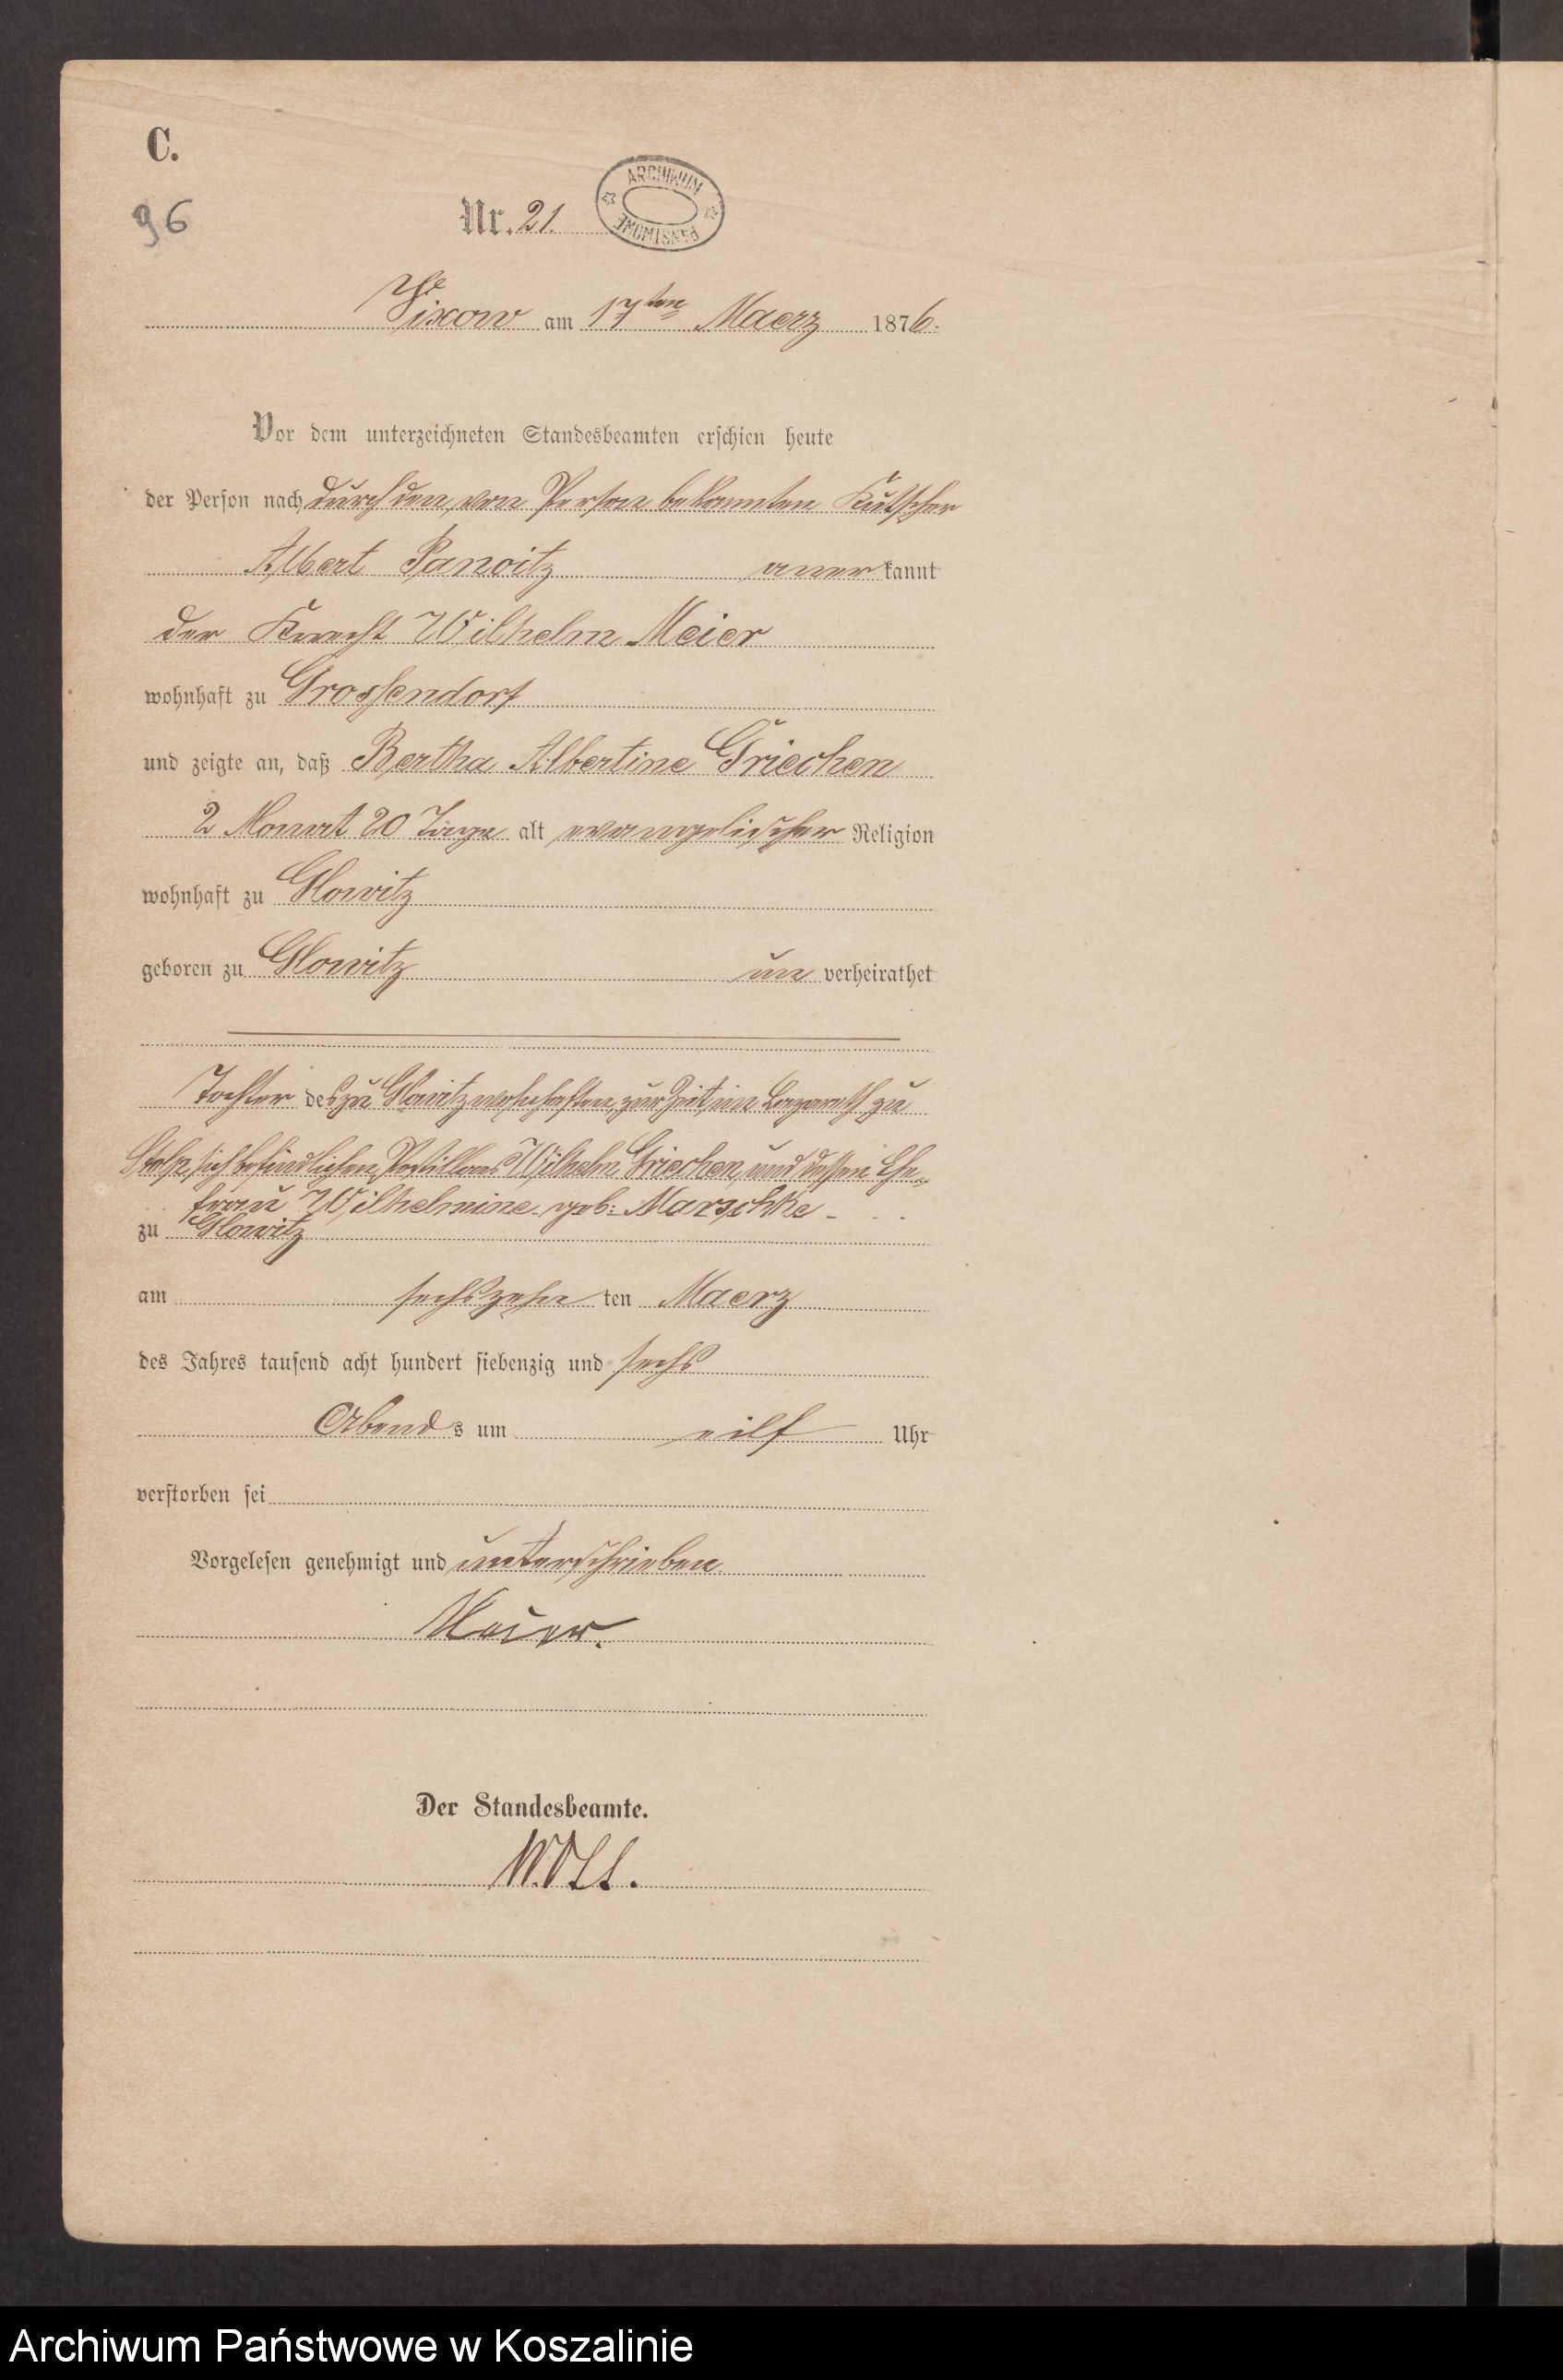 C.
96
Nr. 21.
ARCHIWUM
PAŃSTWOWE
Vixow am 17ten Maerz 1876.
Vor dem unterzeichneten Standesbeamten erschien heute
der Person nach durch den, von Person bekannten Kutscher
Albert Panoitz anerkannt
der Knecht Wilhelm Meier
wohnhaft zu Grossendorf
und zeigte an, daß Bertha Albertine Griechen
2 Monat 20 Tage alt evangelischer Religion
wohnhaft zu Glowitz
geboren zu Glowitz unverheirathet
Tochter des zu Glowitz wohnhaften, zur Zeit im Lazareth zu
Stolp, sich befindlichen Postillons Wilhelm Griechen, und dessen Ehe-
frau Wilhelmine geb: Marschke
zu Glowitz
am sechszehn ten Maerz
des Jahres tausend acht hundert siebenzig und sechs
Abends um eilf Uhr
verstorben sei
Vorgelesen genehmigt und unterschrieben.
Meier.
Der Standesbeamte.
Archiwum Państwowe w Koszalinie